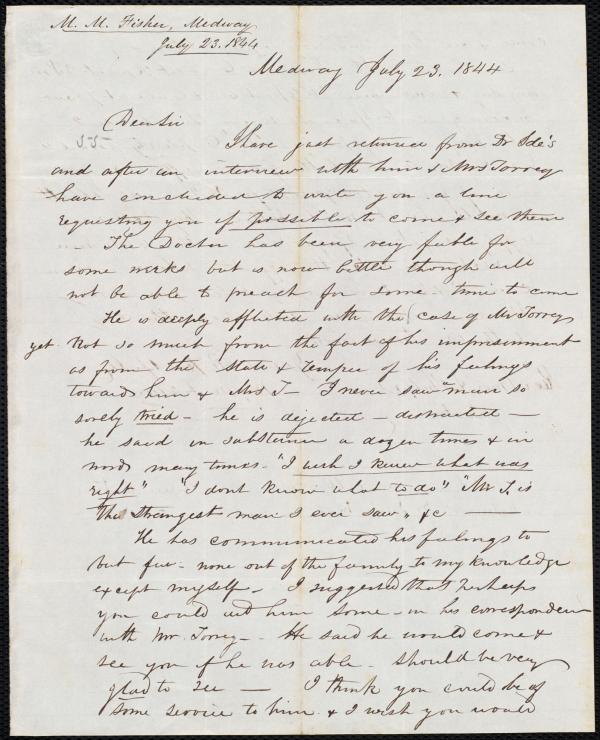 M. M. Fisher, Medway
July 23. 1844
Medway July 23. 1844
Dear Sir
I have just returned from Dr Ide's
and after an interview with him & Mrs Torrey
have concluded to write you a line
requesting you if possible to come & see them
- The Doctor has been very feeble for
some weeks but is now better though will
not be able to preach for some time to come
He is deeply afflicted with the case of Mr Torrey
yet not so much from the fact of his imprisonment
as from the state & temper of his feelings
towards him & Mrs T- I never saw man so
sorely tried - he is dejected - distracted -
he said in substance a dozen times & in
words many times. "I wish I knew what was
right" "I dont know what to do" "Mr T. is
the strangest man I ever saw" &c
He has communicated his feelings to
but few - none out of the family to my knowledge
except myself - I suggested that perhaps
you could aid him some - in his correspondence
with Mr. Torrey - He said he would come &
see you if he was able - should be very
glad to see - I think you could be of
some service to him & I wish you would